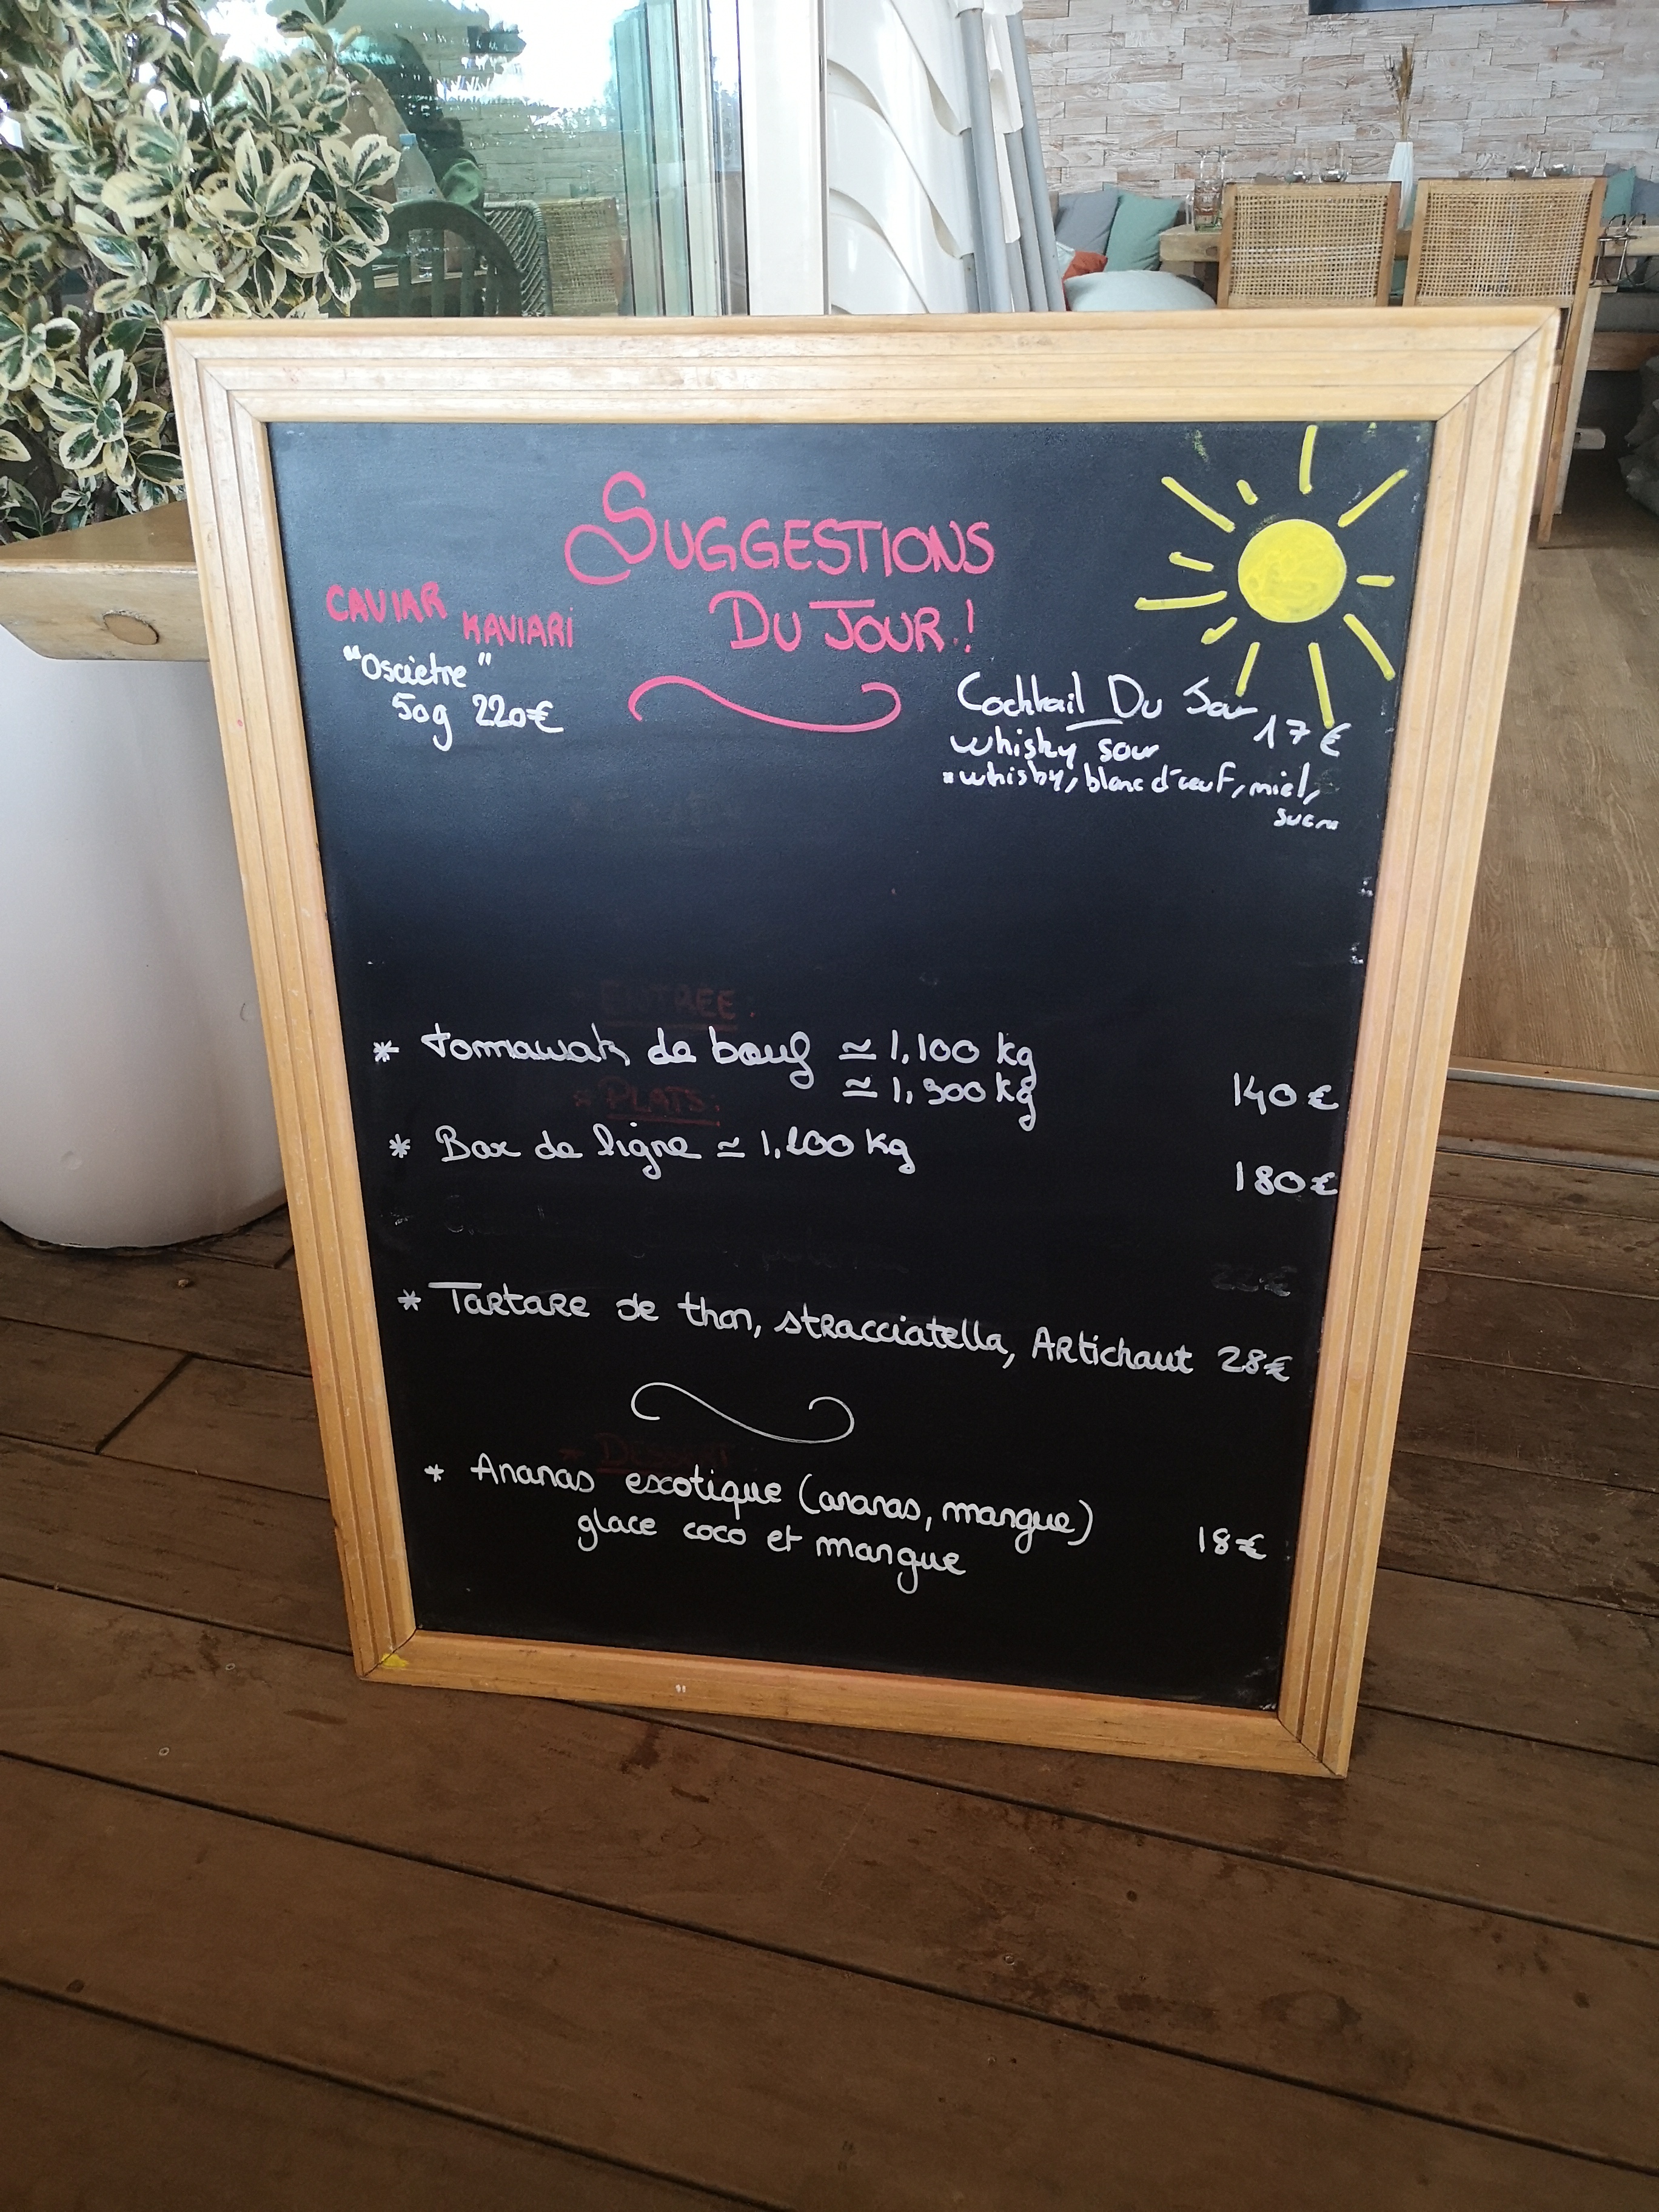 SUGGESTIONS
DU JOUR !
CAVIAR KAVIARI
"Oscietre"
50g 220€
Cocktail Du Jour 17€
whisky sour
*whisky, blanc d'œuf, miel,
sucre
* ENTREE:
* tomawak de bœuf ≃ 1,100 kg
≃ 1,300 kg 140€
* PLATS:
* Bar de ligne ≃ 1,200 kg
180€
22€
* Tartare de thon, stracciatella, Artichaut 28€
* Dessert
* Ananas exotique (ananas, mangue)
glace coco et mangue 18€